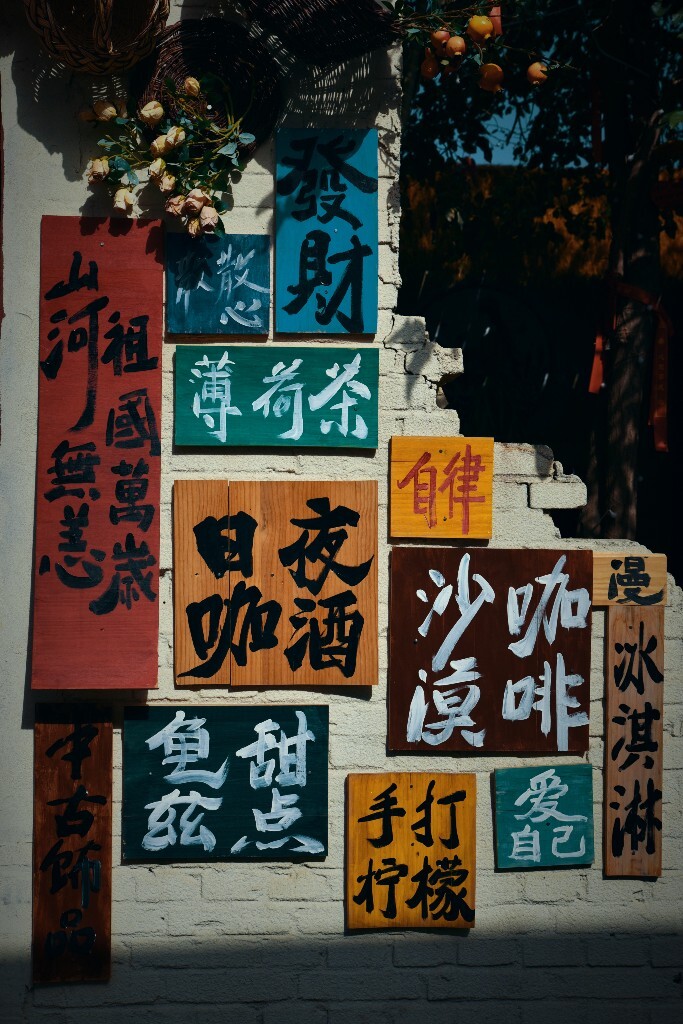 發財
散心
祖國萬歲
山河無恙
薄荷茶
自律
日咖
夜酒
沙漠
咖啡
漫
冰淇淋
中古饰品
龟兹
甜点
手打
柠檬
爱
自己